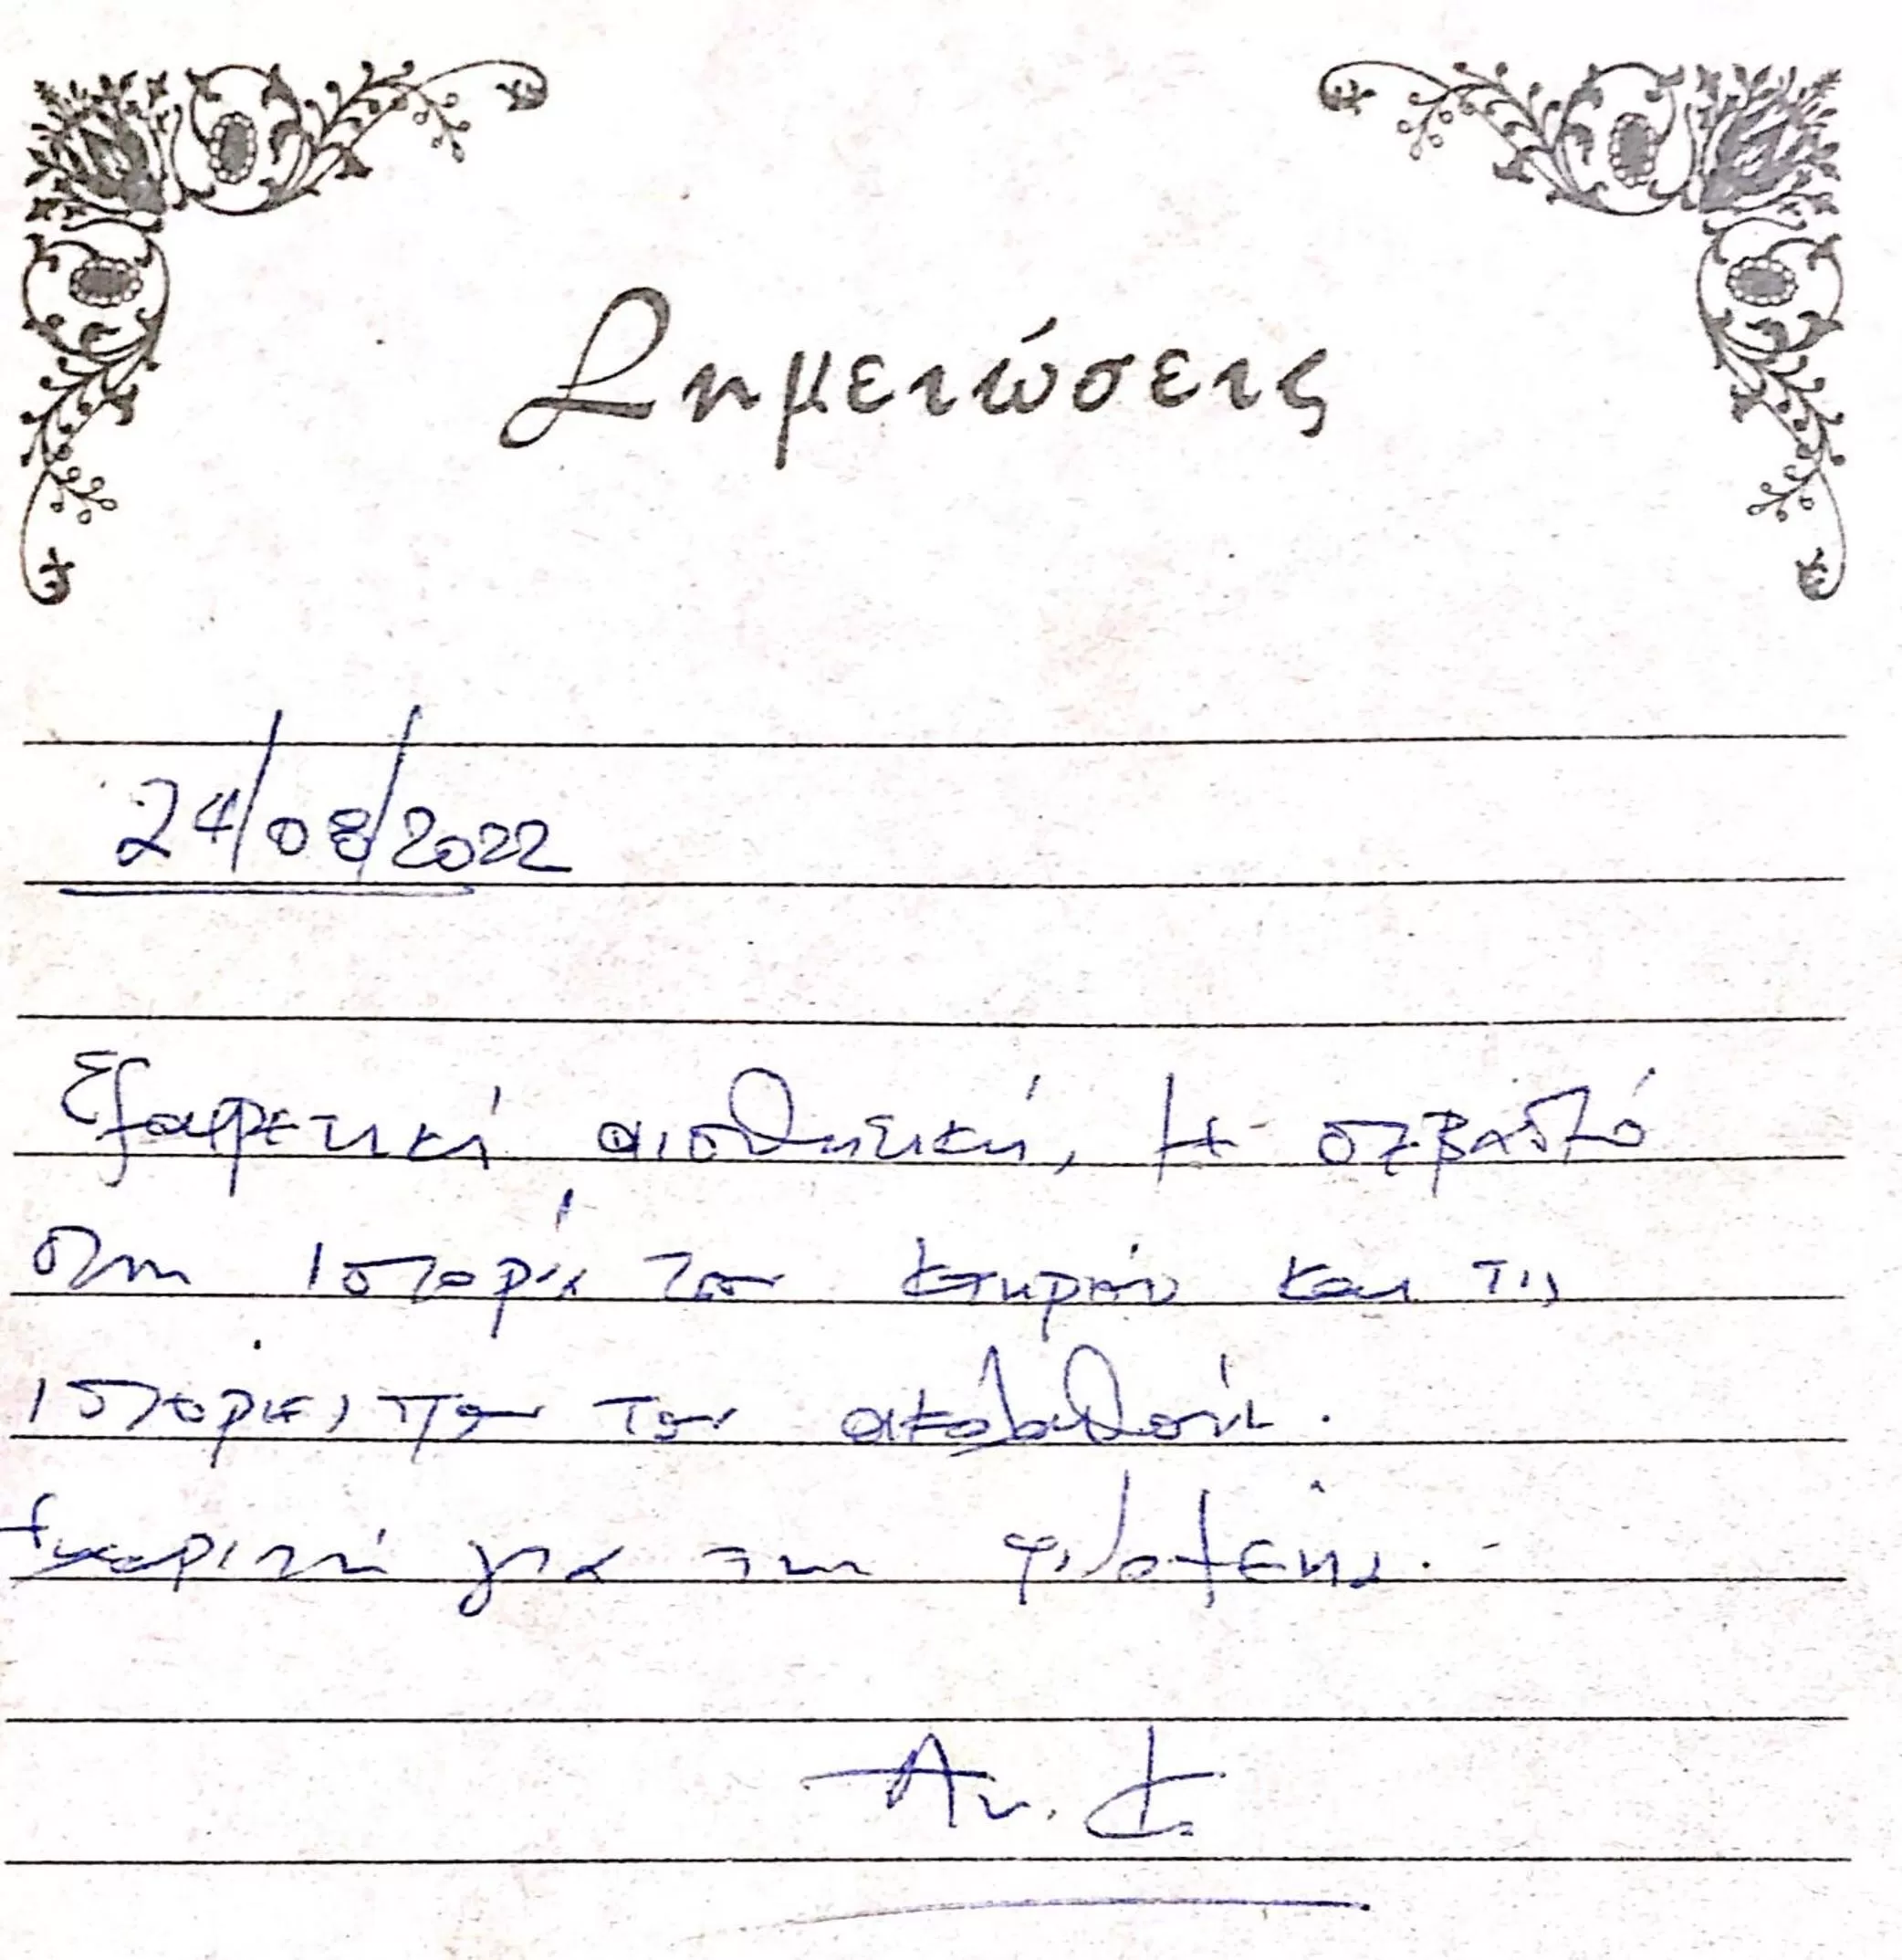 Σημειώσεις
24/08/2022
Εξαιρετική αισθητική, με σεβασμό
στη ιστορία του κτιρίου και τις
ιστορίες που του ακολουθούν.
Ευχαριστώ για την φιλοξενία.
Αν.